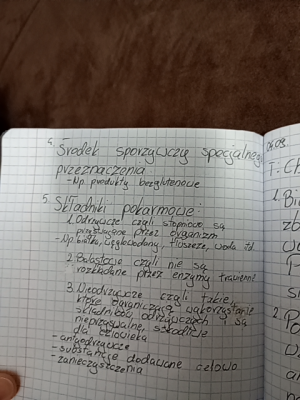 4. Środek sporzywczy specjalnego
przeznaczenia
- Np. produkty bezglutenowe
5. Składniki pokarmowe:
1. Odżywcze czyli stopniowo są
przyswajane przez organizm
- Np. białka, węglowodany, tłuszcze, woda
2. Balastowe czyli nie są
rozkładane przez enzymy trawienne
3. Nieodżywcze czyli takie,
które ograniczają wykorzystanie
składników odżywczych i są
nieprzyswajalne, szkodliwe
dla człowieka
- antyodżywcze
- substancje dodawane celowo
- zanieczyszczenia
06.09
T:
1. Bi
2.